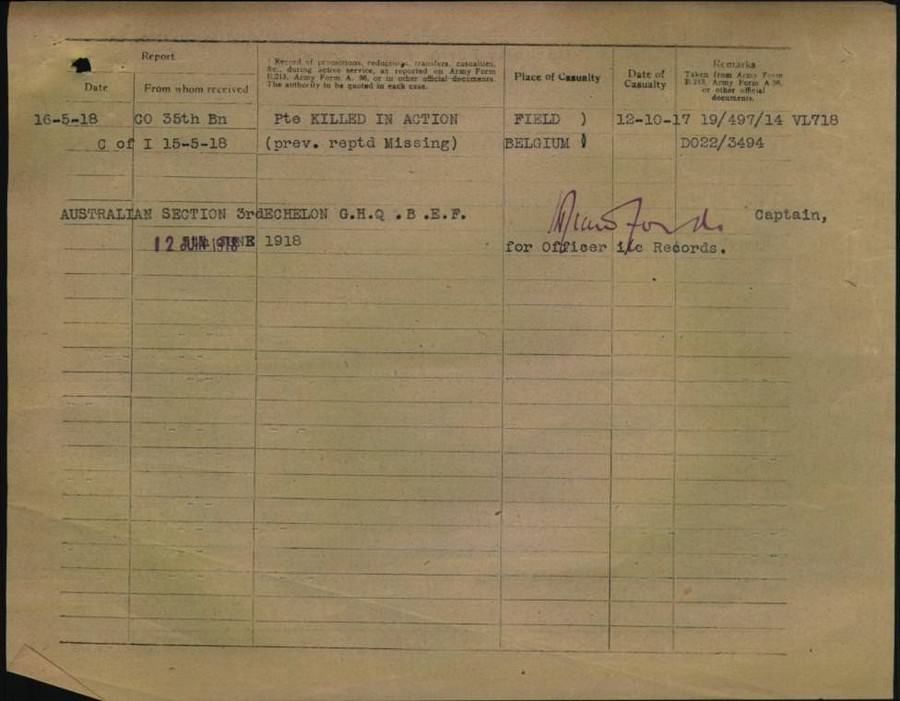 Report
Record of promotions, reductions, transfers, casualties,
&c., during active service, as reported on Army Form
B.213, Army Form A. 36, or in other official documents.
The authority to be quoted in each case.
Place of Casualty
Date of
Casualty
Remarks
Taken from Army Form
B.213, Army Form A.36,
or other official
documents.
Date
From whom received
16-5-18 CO 35th Bn Pte KILLED IN ACTION FIELD ) 12-10-17 19/497/14 VL718
C of I 15-5-18 (prev. reptd Missing) BELGIUM ) DO22/3494
AUSTRALIAN SECTION 3rdECHELON G.H.Q .B .E.F. Captain,
12 JUN 1918 1918 for Officer i/c Records.